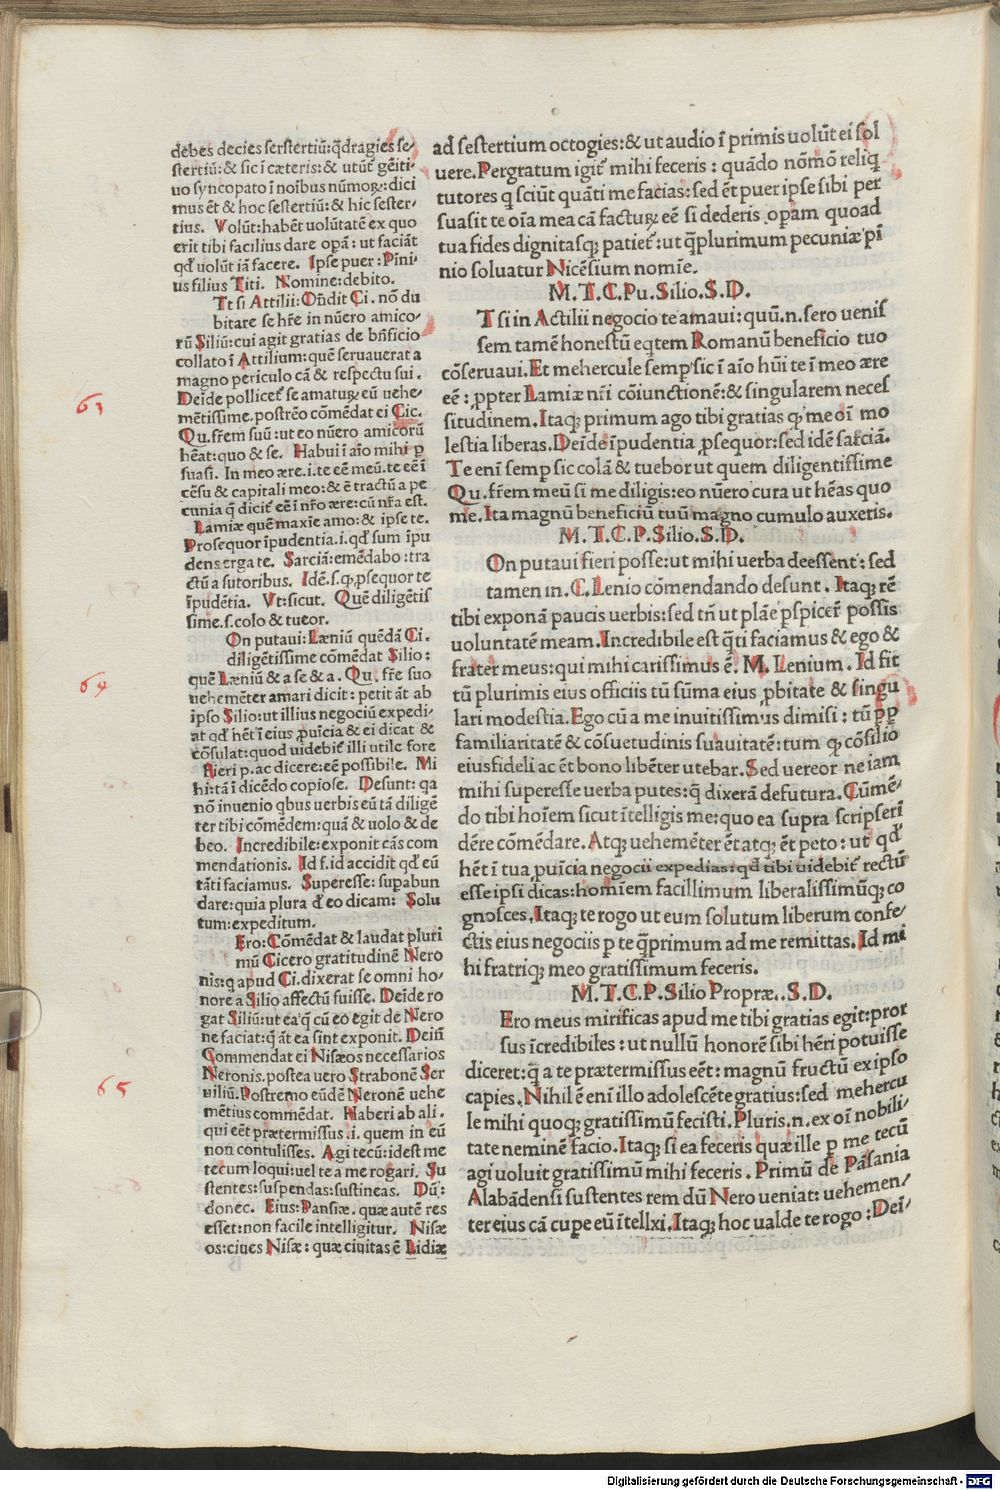 debes decies serstertiū:q̄dragies se-
stertiū:& sic ī cæteris:& utūt᷒ gēiti-
uo syncopato ī noībus nūmoꝝ:dici
mus ēt & hoc sestertiū:& hic sester-
tius. Volūt:habēt uolūtatē ex quo
erit tibi facilius dare opā: ut faciāt
qđ uolūt iā facere. Ipse puer:Pīni-
us filius Titi. Nomine:debito.
Tt si Attilii:Oñdit Ci. nō du
bitare se hr̄e in nūero amico-
rū Siliū:cui agit gratias de bn̄ficio
collato ī Attilium:quē seruauerat a
magno periculo cā & respectu sui.
Deīde pollicet᷒ se amatuꝝ eū uehe-
mētissime.postrēo cōmēdat ei Cic.
Qu.fr̄em suū:ut eo nūero amicorū
hēat:quo & se. Habui ī aīo mihi p
suasi. In meo ære.i.te eē meū.te eē ī
cēsu & capitali meo:& ē tractū a pe
cunia q̄ dicit᷒ eē ī nr̄o ære:cū nr̄a est.
Lamiæ quē maxīe amo:& ipse te.
Prosequor īpudentia.i.qđ sum īpu
dens erga te. Sarciā:emēdabo:tra
ctū a sutoribus. Idē.s.ꝙ ꝓsequor te
īpudētia. Vt:sicut. Quē diligētis
sime.s.colo & tueor.
On putaui:Læniū quēdā Ci.
diligētissime cōmēdat Silio:
quē Læniū & a se & a. Qu. fr̄e suo
uehemēter amari dicit: petit āt ab
ipso Silio:ut illius negociū expedi-
at qđ hēt ī eius ꝓuīcia & ei dicat &
cōsulat:quod uidebit᷒ illi utile fore
Fieri p.ac dicere:eē possibile. Mi
hi:tā ī dicēdo copiose. Desunt: qa
nō inuenio qbus uerbis eū tā diligē
ter tibi cōmēdem:quā & uolo & de
beo. Incredibile:exponit cās com
mendationis. Id.s.id accidit qđ eū
tāti faciamus. Superesse: supabun
dare:quia plura đ eo dicam: Solu
tum:expeditum.
Ero: Cōmēdat & laudat pluri
mū Cicero gratitudinē Nero
nis:q apud Ci.dixerat se omni ho-
nore a Silio affectū fuisse. Deīde ro
gat Siliū:ut ea q̄ cū eo egit de Nero
ne faciat:q̄ āt ea sint exponit. Deiñ
Commendat ei Nisæos necessarios
Neronis.postea uero Strabonē Ser
uiliū.Postremo eūdē Neronē uehe
mētius commēdat. Haberi ab ali.
qui eēt prætermissus.i. quem in eū
non contulisses. Agi tecū:idest me
tecum loqui:uel te a me rogari. Su
stentes:suspendas:sustineas. Dū:
donec. Eius:Pansiæ. quæ autē res
esset:non facile intelligitur. Nisæ
os:ciues Nisæ: quæ ciuitas ē Lidiæ
ad sestertium octogies:& ut audio ī primis uolūt ei sol
uere. Pergratum igit᷒ mihi feceris : quādo nō mō reliq
tutores q sciūt quāti me facias:sed ēt puer ipse sibi per
suasit te oīa mea cā factuꝝ eē si dederis opam quoad
tua fides dignitasqꝫ patiet᷒:ut q̄plurimum pecuniæ pī
nio soluatur Nicēsium nomīe.
M.T.C.Pu.Silio.S.D.
T si in Actilii negocio te amaui:quū.n.sero uenis
sem tamē honestū eqtem Romanū beneficio tuo
cōseruaui.Et mehercule semp sic ī aīo hūi te ī meo ære
eē : ꝓpter Lamiæ nr̄i cōiunctionē:& singularem neces
situdinem. Itaqꝫ primum ago tibi gratias ꝙ me oī mo
lestia liberas.Deīde īpudentia ꝓsequor:sed idē sarciā.
Te enī semp sic colā & tuebor ut quem diligentissime
Qu.fr̄em meū si me diligis:eo nūero cura ut hēas quo
me.Ita magnū beneficiū tuū magno cumulo auxeris.
M.T.C.P.Silio.S.D.
On putaui fieri posse:ut mihi uerba deessent: sed
tamen in.C.Lenio cōmendando desunt. Itaqꝫ rē
tibi exponā paucis uerbis:sed tn̄ ut plāe pspicer̄ possis
uoluntatē meam.Incredibile est q̄ti faciamus & ego &
frater meus:qui mihi carissimus ē. M. Lenium. Id fit
tū plurimis eius officiis tū sūma eius ꝓbitate & singu
lari modestia.Ego cū a me inuitissimus dimisi : tū ꝓp
familiaritatē & cōsuetudinis suauitatē:tum ꝙ cōsilio
eiusfideli ac ēt bono libēter utebar.Sed uereor ne iam
mihi superesse uerba putes:q̄ dixerā defutura. Cūmē-
do tibi hoīem sicut ītelligis me:quo ea supra scripserī
dēre cōmēdare. Atqꝫ uehemēter ēt atqꝫ ēt peto: ut qđ
hēt ī tua ꝓuīcia negocii expedias:qđ tibi uidebit᷒ rectū
esse ipsi dicas:homīem facillimum liberalissimūqꝫ co
gnosces.Itaqꝫ te rogo ut eum solutum liberum confe-
ctis eius negociis p te q̄primum ad me remittas.Id mi
hi fratriqꝫ meo gratissimum feceris.
M.T.C.P.Silio Propræ..S.D.
Ero meus mirificas apud me tibi gratias egit:pror
sus īcredibiles : ut nullū honorē sibi hēri potuisse
diceret:q̄ a te prætermissus eēt: magnū fructū ex ipso
capies.Nihil ē enī illo adolescēte gratius:sed mehercu
le mihi quoqꝫ gratissimū fecisti.Pluris.n.ex oī nobili-
tate neminē facio.Itaqꝫ si ea feceris quæ ille p me tecū
agi uoluit gratissimū mihi feceris. Primū de Pāsania
Alabādensi sustentes rem dū Nero ueniat: uehemen-
ter eius cā cupe eū ītellxi.Itaqꝫ hoc ualde te rogo:Deī-
63
64
65
Digitalisierung gefördert durch die Deutsche Forschungsgemeinschaft - DFG